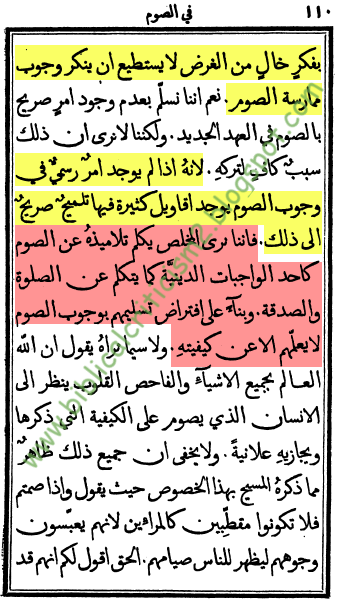 ١١٠
في الصوم
بفكرٍ خالٍ من الغرض لا يستطيع ان ينكر وجوب
ممارسة الصوم. نعم اننا نسلّم بعدم وجود امرٍ صريح
بالصوم في العهد الجديد. ولكننا لا نرى ان ذلك
سببٌ كافٍ لتركهِ. لانهُ اذا لم يوجد امرٌ رسميٌّ في
وجوب الصوم يوجد اقاويل كثيرة فيها تلميحٌ صريحٌ
الى ذلك. فاننا نرى المخلص يكلم تلاميذهُ عن الصوم
كاحد الواجبات الدينية كما يتكلم عن الصلوة
والصدقة. وبناءً على افتراض تسليمهم بوجوب الصوم
لا يعلّمهم الا عن كيفيتهِ. ولا سيما نراهُ يقول ان الله
العالم بجميع الاشياء والفاحص القلوب ينظر الى
الانسان الذي يصوم على الكيفية التي ذكرها
ويجازيهِ علانيةً. ولا يخفى ان جميع ذلك ظاهرٌ
مما ذكرهُ المسيح بهذا الخصوص حيث يقول واذا صمتم
فلا تكونوا مقطّبين كالمرائين لانهم يعبّسون
وجوههم ليظهر للناس صيامهم. الحق اقول لكم انهم قد
www.biblicalcriticism2.blogspot.com